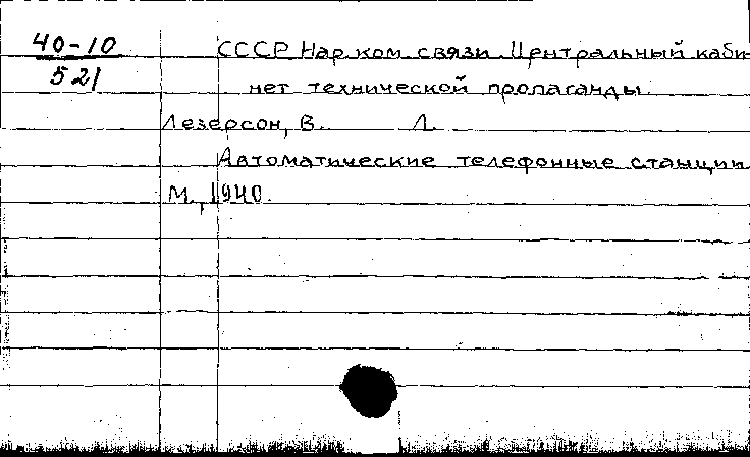 40-10
521
СССР Нар. ком. связи. Центральный каби-
нет технической пропаганды.
Лезерсон, В. Л.
Автоматические телефонные станции
М., 1940.